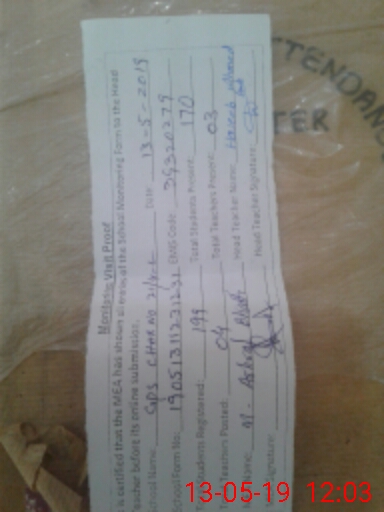 Monitoring Visit Proof
is certified that the MEA has shown all entries of the School Monitoring Form to the Head
Teacher before its online submission.
School Name: GPS CHAK NO Date 13-5-2019
School Form No: EMIS Code 39320279
Students Registered: 199 Total Students Present: 170
Teachers Posted: 04 Total Teachers Present: 03
Name: M. Ashraf Head Teacher Name: Haseeb Ahmed
Signature: Head Teacher Signature
ATTENDAN
TER
13-05-19 12:03